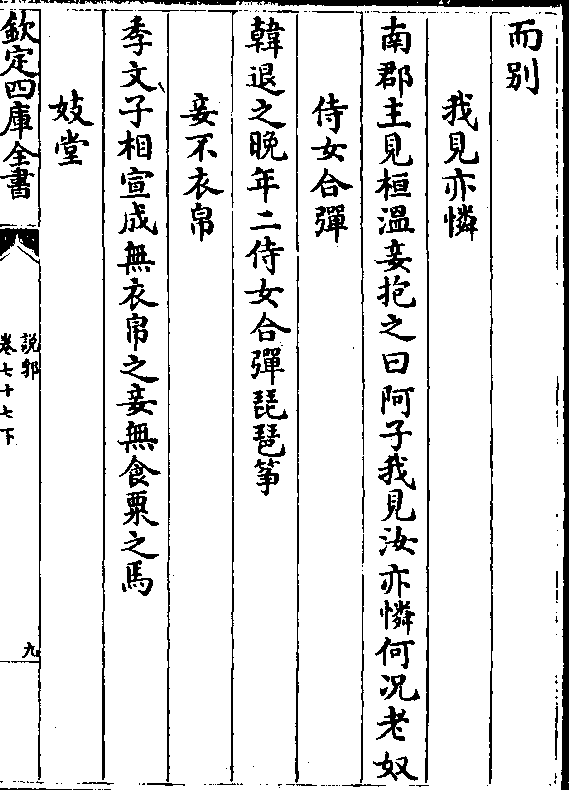 而别
我見亦憐
南郡主見桓溫妾抱之曰阿子我見汝亦憐何況老奴
侍女合彈
韓退之晚年二侍女合彈琵琶箏
妾不衣帛
季文子相宣成無衣帛之妾無食粟之馬
妓堂
欽定四庫全書
說郛
卷七十七下
九